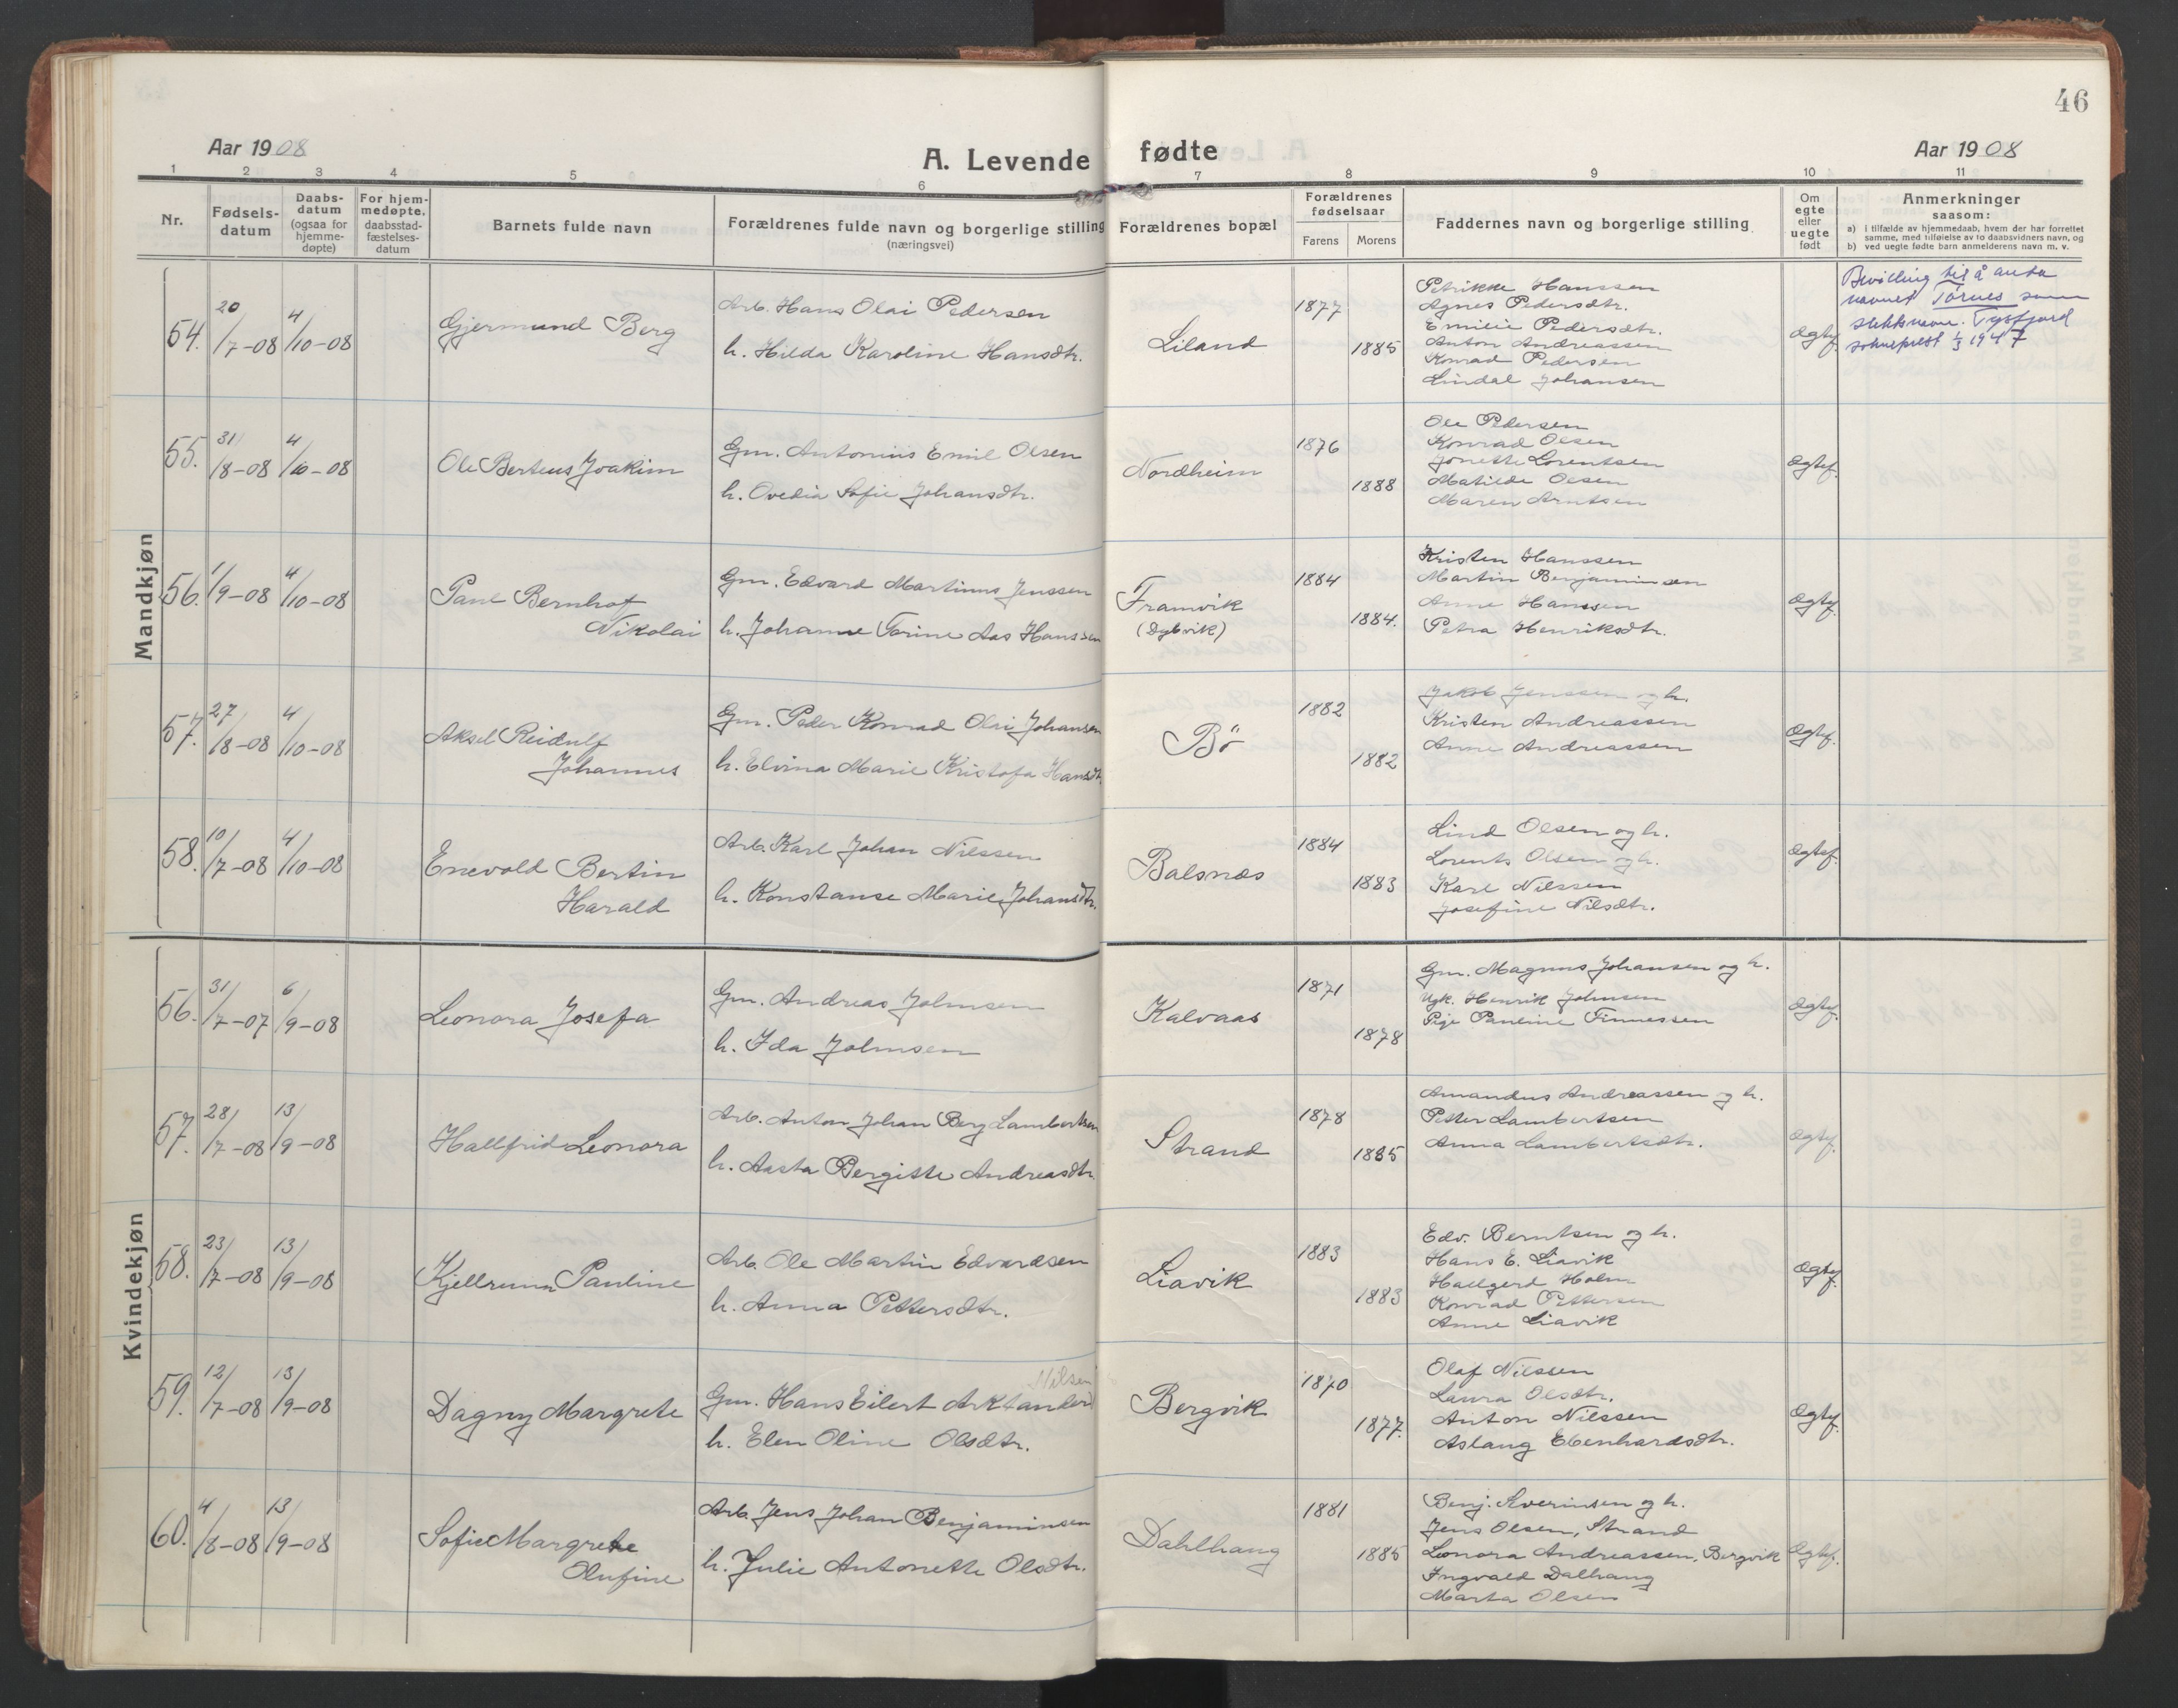 46
Aar 1908
A. Levende fødte
Aar 1908
1 2 3 4 5 6 7 8 9 10 11
Nr.
Fødsels-
datum
Daabs-
datum
(ogsaa for
hjemme-
døpte)
For hjem-
medøpte,
daabsstad-
fæstelses-
datum
Barnets fulde navn
Forældrenes fulde navn og borgerlige stilling
(næringsvei)
Forældrenes bopæl
Forældrenes
fødselsaar
Farens Morens
Faddernes navn og borgerlige stilling
Om
egte
eller
uegte
født
Anmerkninger
saasom:
a) i tilfælde av hjemmedaab, hvem der har forrettet
samme, med tilføielse av to daabsvidners navn, og
b) ved uegte fødte barn anmelderens navn m. v.
Mandkjøn
54. 20/7-08 4/10-08
Gjermund Berg
Arb. Hans Olai Pedersen
h. Hilda Karoline Hansdtr.
Liland
1877
1885
Petrikke Hanssen
Agnes Pedersdtr.
Emilie Pedersdtr.
Anton Andreassen
Konrad Pedersen
Lindal Johansen
Ægtef.
Bevilling til å anta
navnet Tørnes som
slektsnavn. Tysfjord
sokneprest 1/3 1947
55. 31/8-08 4/10-08
Ole Berteus Joakim
Gm. Antonius Emil Olsen
h. Ovedia Sofie Johansdtr.
Nordheim
1876
1888
Ole Pedersen
Konrad Olsen
Jonette Lorentsen
Matilde Olsen
Maren Arntsen
Ægtef.
56. 1/9-08 4/10-08
Paul Bernhof
Nikolai
Gm. Edvard Martinus Jenssen
h. Johanne Torine Aas Hanssen
Framvik
(Dybvik)
1884
1884.
Kristen Hanssen
Martin Benjaminsen
Anne Hanssen
Petra Henriksdtr.
Ægtef.
57. 27/8-08 4/10-08
Aksel Reidulf
Johannes
Gm. Peder Konrad Olai Johansen
h. Elvina Marie Kristofa Hansdtr.
Bö
1882
1882
Jakob Jenssen og h.
Kristen Andreassen
Anne Andreassen
Ægtef.
58. 10/7-08 4/10-08
Enevold Bertin
Harald
Arb. Karl Johan Nilssen
h. Konstanse Marie Johansdtr.
Balsnæs
1884
1883
Lind Olsen og h.
Lorents Olsen og h.
Karl Nilssen
Josefine Nilsdtr.
Ægtef.
Kvindekjøn
56. 31/7-07 6/9-08
Leonora Josefa
Gm. Andreas Johnsen
h. Ida Johnsen
Kalvaas
1871
1878
Gm. Magnus Johansen og h.
Ugk. Henrik Johnsen
Pige Pauline Finnessen
Ægtef.
57. 28/7-08 13/9-08
Hallfrid Leonora
Arb. Anton Johan Berg Lambertsen
h. Aasta Bergitte Andreasdtr.
Strand
1878
1885
Amandus Andreassen og h.
Petter Lambertsen
Anna Lambertsdtr.
Ægtef.
58. 23/7-08 13/9-08
Kjellrunn Pauline
Arb. Ole Martin Edvardsen
h. Anna Pettersdtr.
Liavik
1883
1883
Edv. Berntsen og h.
Hans E. Liavik
Hallgerd Holm
Konrad Pettersen
Anne Liavik
Ægtef.
59. 12/7-08 13/9-08
Dagny Margrete
Nilsen
Gm. Hans Eilert Arktander
h. Elen Oline Olsdtr.
Bergvik
1870
1877.
Olaf Nilssen
Laura Olsdtr.
Anton Nilssen
Aslaug Ebenhardsdtr.
Ægtef.
60. 4/8-08 13/9-08
Sofie Margrete
Olufine
Arb. Jens Johan Benjaminsen
h. Julie Antonette Olsdtr.
Dahlhaug
1881
1885
Benj. Severinsen og h.
Jens Olsen, Strand
Leonora Andreassen, Bergvik
Ingvald Dalhaug
Marta Olsen
Ægtef.